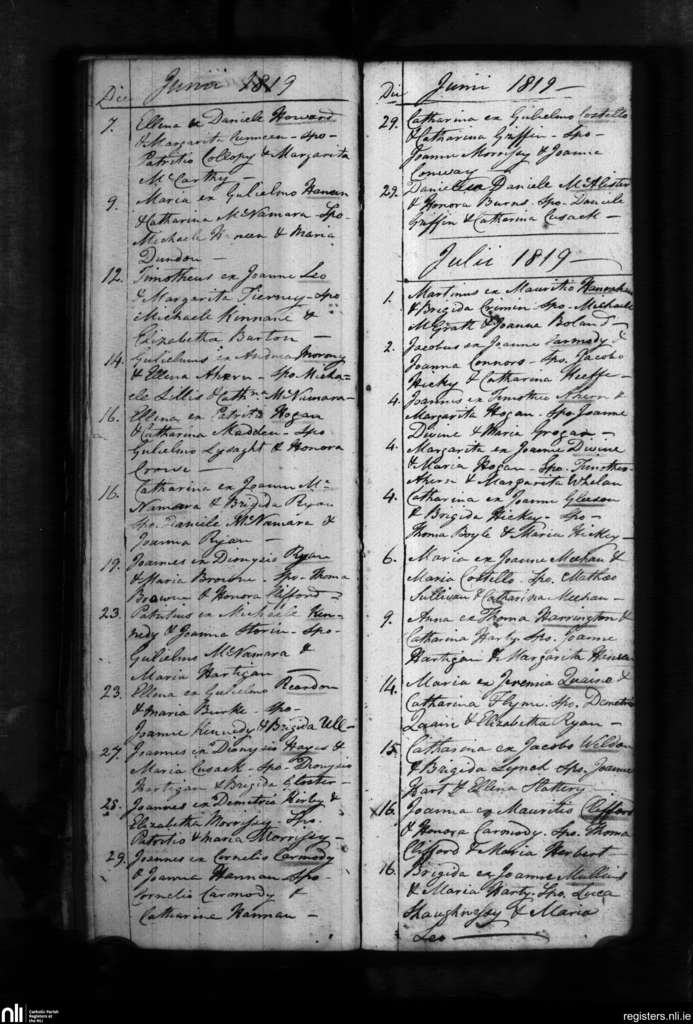 Die Junii 1819
7. Ellena ex Daniele Howard
& Margarita - Spo-
Patritio Collopy & Margarita
McCarthy -
9. Maria ex Gulielmo Hanan
& Catharina McNamara - Spo-
Michaele & Maria
Dundon -
12. Timotheus ex Joanne Leo
& Margarita Tierney - Spo
Michaele Kinnane &
Elizabetha Barton -
14. Gulielmus ex Andrea
& Ellena Ahern - Spo. Micha-
ele Lillis & Cathna McNamara -
16. Ellena ex Patritio Hogan
& Catharina Madden - Spo-
Gulielmo Lysaght & Honora
Crowe -
16. Catharina ex Joanne Mc
Namara & Brigida Ryan
Spo. Daniele McNamara &
Joanna Ryan -
19. Joannes ex Dionysio Ryan
& Maria Browne - Spo. Thoma
Browne & Honora Clifford -
23. Patritius ex Michaele Ken-
nedy & Joanna - Spo-
Gulielmo McNamara &
Maria Hartigan -
23. Ellena ex Gulielmo Reardon
& Maria Burke - Spo-
Joanne Kennedy & Brigida
27. Joannes ex Dionysio Hayes &
Maria Cusack - Spo. Dionysio
Hartigan & Brigida
25. Joannes ex Demetrio Kirby &
Elizabetha Morrissey - Spo.
Patritio & Maria Morrissey -
29. Joannes ex Cornelio Carmody
& Joanna Hannan Spo-
Cornelio Carmody &
Catharina Hannan -
Die Junii 1819 -
29. Catharina ex Gulielmo Costello
& Catharina Griffin - Spo-
Joanne Morrissey & Joanna
Conway -
29. Daniel ex Daniele McAlister
& Honora Burns - Spo- Daniele
Griffin & Catharina Cusack -
Julii 1819 -
1. Martinus ex Mauritio Hanrahan
& Brigida Crimin Spo- Michaele
McGrath & Joanna Boland -
2. Jacobus ex Joanne Carmody &
Joanna Connors - Spo. Jacobo
Hicky & Catharina Keeffe -
4. Joannes ex Timotheo Ahern &
Margarita Hogan - Spo Joanne
Divine & Maria Grogan -
4. Margarita ex Joanne Divine
& Maria Hogan - Spo. Timotheo
Ahern & Margarita Whelan
4. Catharina ex Joanne Gleeson
& Brigida Hickey - Spo-
Thoma Boyle & Maria Hickey -
6. Maria ex Joanne Meehan &
Maria Costello - Spo. Matheo
Sullivan & Catharina Meehan -
9. Anna ex Thoma Harrington &
Catharina Harty Spo. Joanne
Hartigan & Margarita
14. Maria ex Jeremia &
Catharina Flynn - Spo. Demetrio
& Elizabetha Ryan -
15. Catharina ex Jacobo Weldon
& Brigida Lynch Spo. Joanne
Hart & Ellena Slattery -
x16. Joanna ex Mauritio Clifford
& Honora Carmody. Spo. Thoma
Clifford & Maria Herbert
16. Brigida ex Joanne Mullins
& Maria Harty. Spo. Luca
Shaughnessy & Maria
Leo -
nli Catholic Parish
Registers at
the NLI
registers.nli.ie